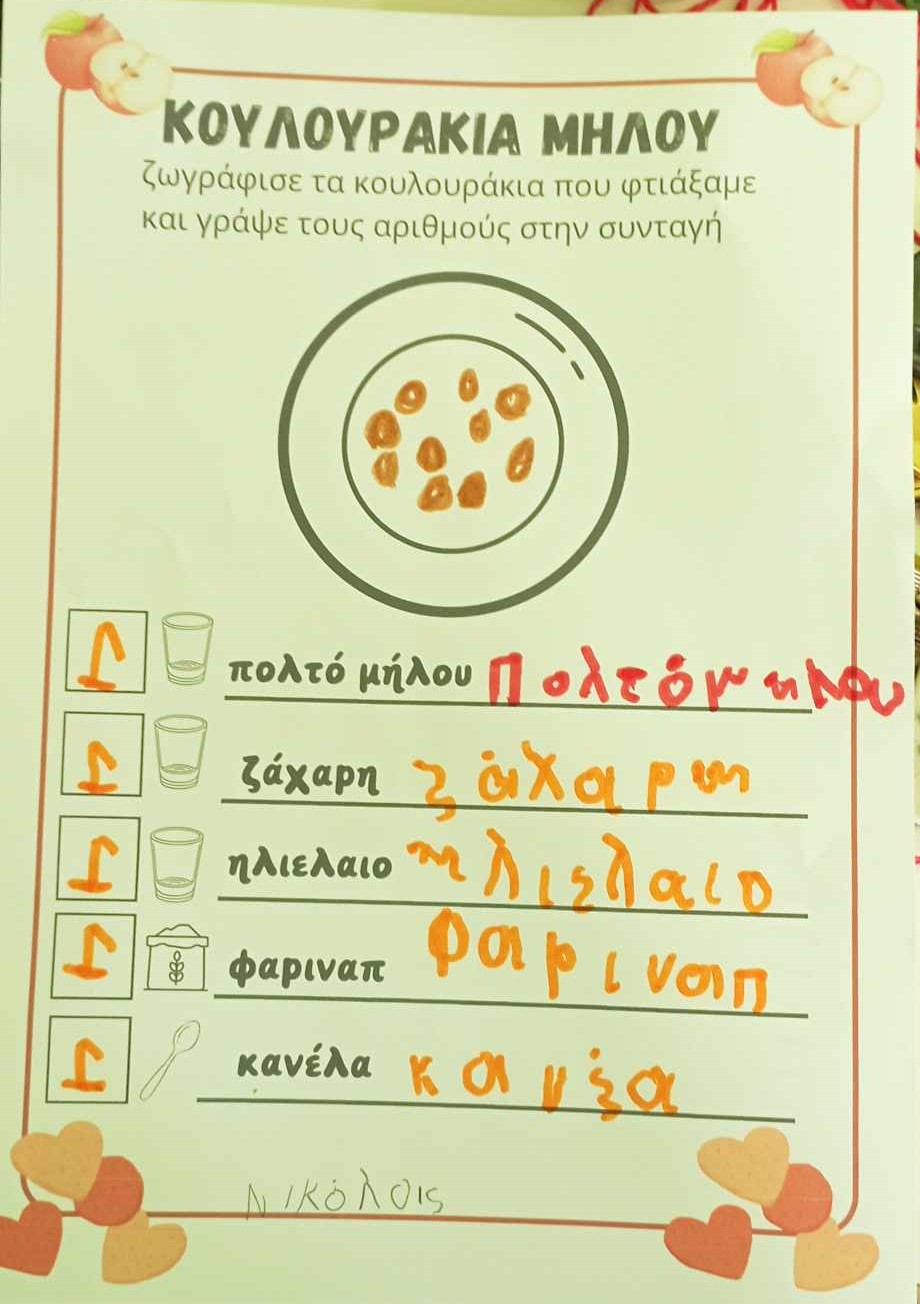 ΚΟΥΛΟΥΡΑΚΙΑ ΜΗΛΟΥ
ζωγράφισε τα κουλουράκια που φτιάξαμε
και γράψε τους αριθμούς στην συνταγή
1 πολτό μήλου Πολτό μηλου
1 ζάχαρη ζάχαρη
1 ηλιελαιο ηλιελαιο
1 φαριναπ φαριναπ
1 κανέλα κανέα
Νικόλας